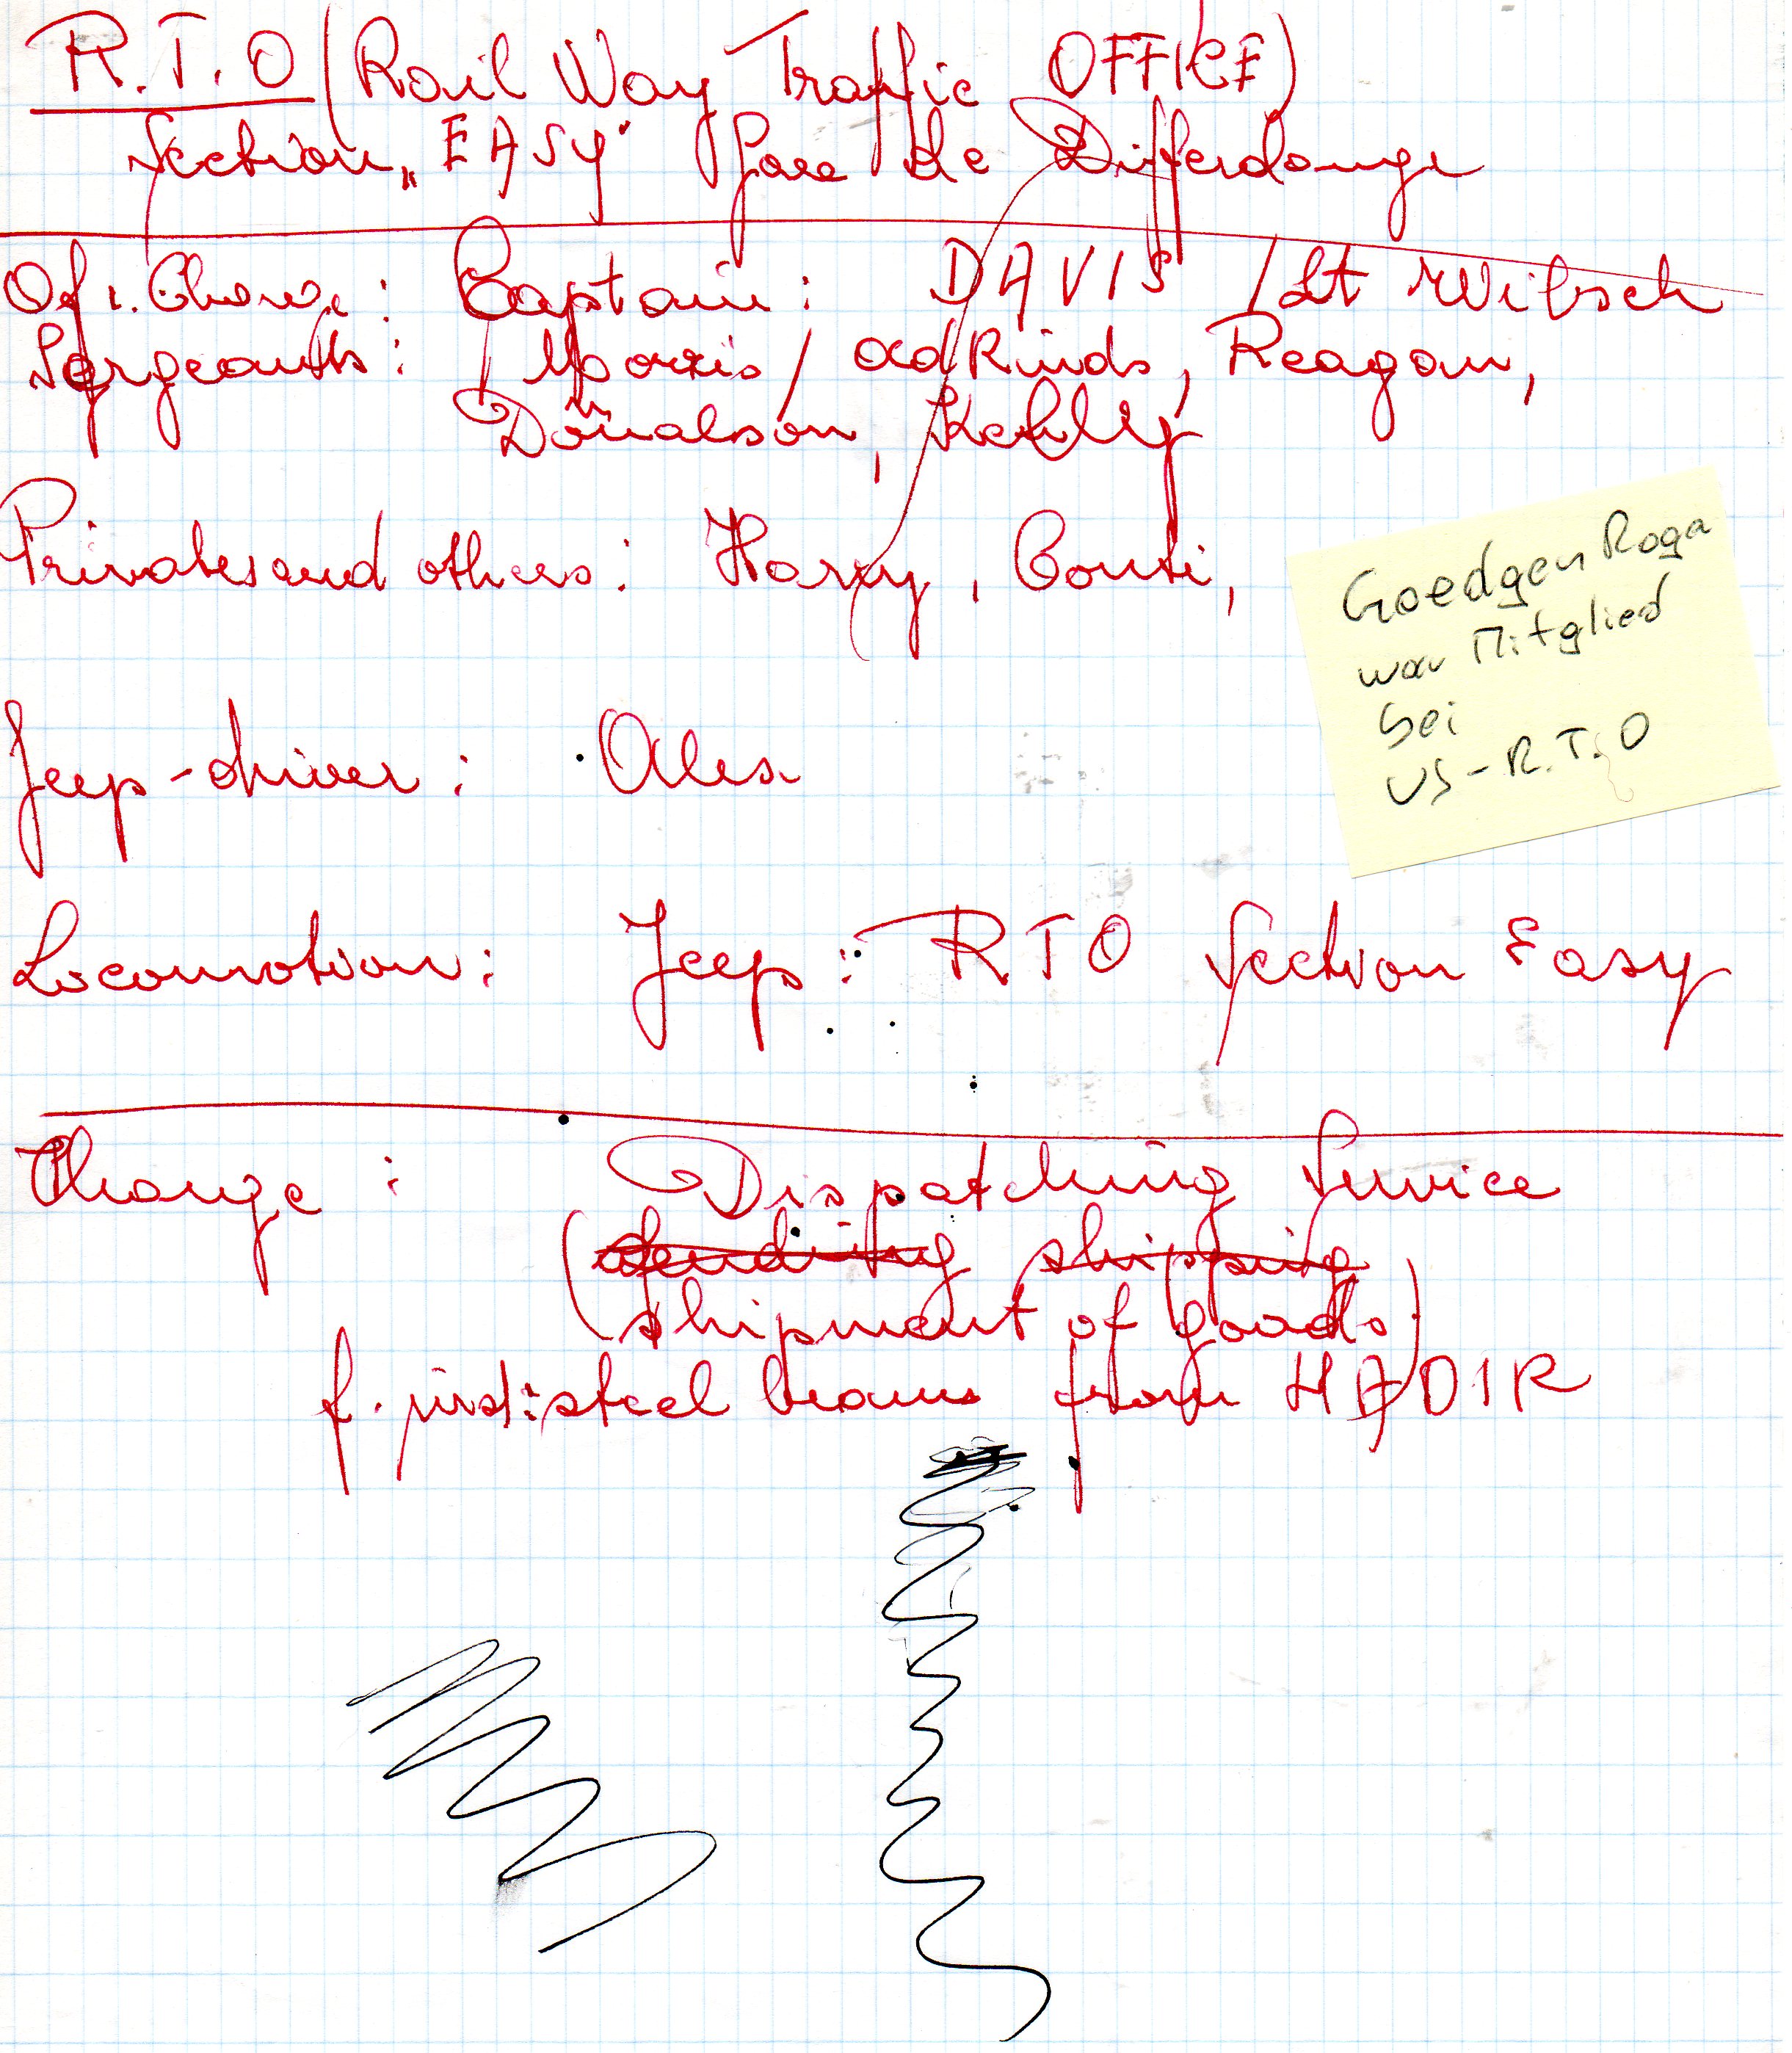 R.T.O (Rail Way Traffic OFFICE)
Section „EASY" Gare de Differdange
Of i. Charge : Captain : DAVIS / Lt
Sergeants : Morris / adkinds, Reagan,
Donalson, Kehlly
Privates and others : Harry, Conti,
Jeep-driver : Alex
Locomotion : Jeep : RTO Section Easy
Charge : Dispatching Service
(sending shipping
shipment of goods)
f. inst: steel beams from HADIR
Goedgen Roga
war Mitglied
bei
US-R.T.O